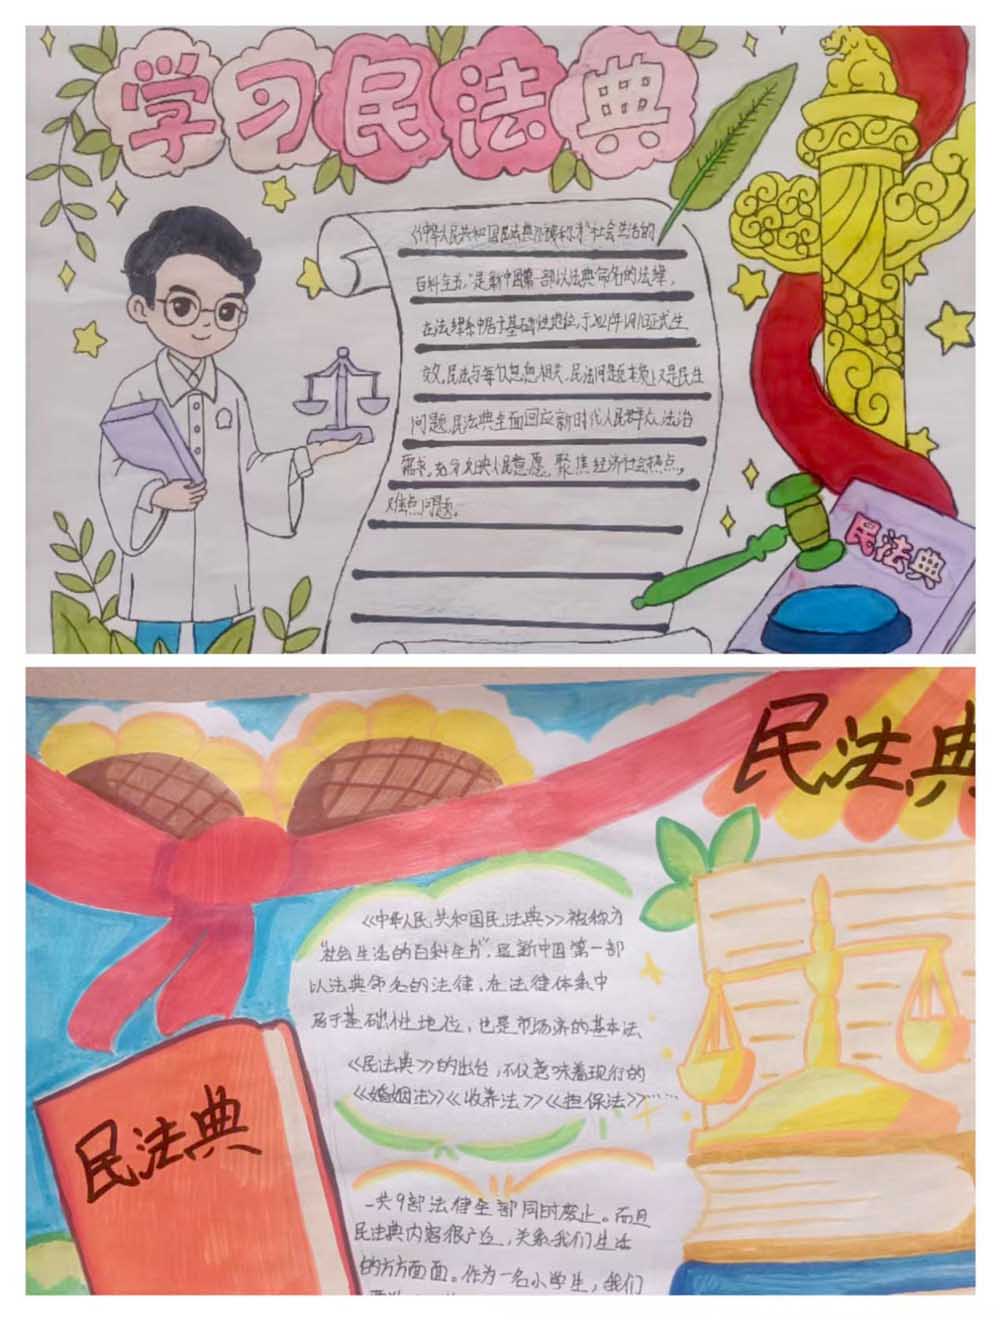 学习民法典
《中华人民共和国民法典》被称为“社会生活的
百科全书”,是新中国第一部以法典命名的法律,
在法律体系中居于基础性地位,于2021年1月1日正式生
效,民法与每个人息息相关,民法问题 又是民生
问题,民法典全面回应新时代人民群众法治
需求,充分反映人民意愿,聚焦经济社会热点,
难点问题。
民法典
民法典
《中华人民共和国民法典》被称为
“社会生活的百科全书”,是新中国第一部
以法典命名的法律,在法律体系中
居于基础性地位,也是市场济的基本法、
《民法典》的出台,不仅意味着现行的
《婚姻法》《收养法》《担保法》……
民法典
一共9部法律全部同时废止。而且
民法典内容很广泛,关系我们生活
的方方面面。作为一名小学生,我们